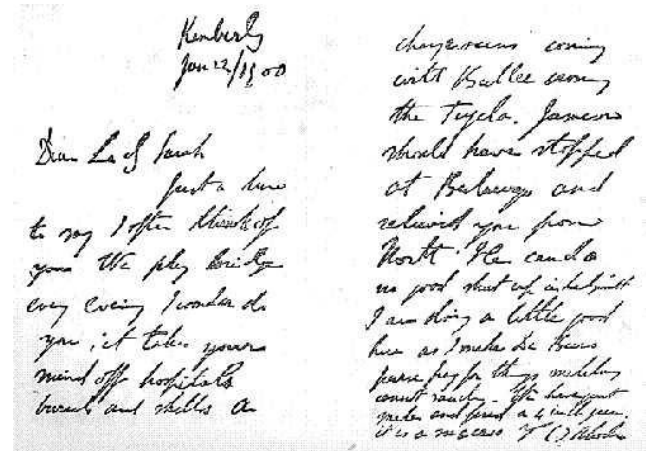 Kimberly
Jan 22/1900
Dear Lady Sarah
Just a line
to say I often think of
you We play bridge
every evening I wonder do
you, it takes your
mind off hospitals
burials and shells. A
change seems coming
with Buller crossing
the Tugela. Jameson
should have stopped
at Bulawayo and
relieved you from
North. He can do
no good shut up in Ladysmith
I am doing a little good
here as I make De Beers
purse pay for things military
cannot sanction. We have just
made and fired a 4 inch gun,
it is a success. Yr CJ Rhodes